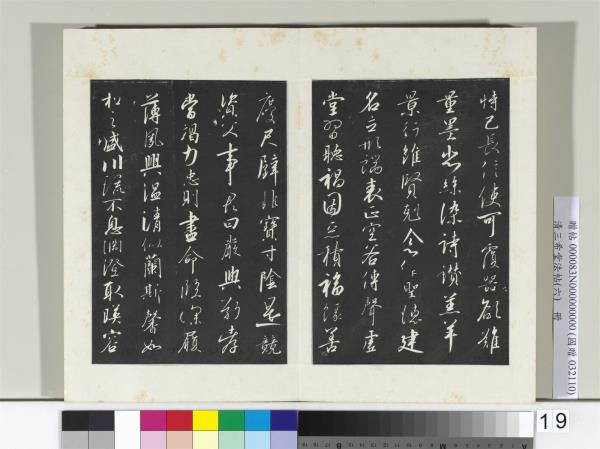 恃己長信使可覆器欲難
量墨悲絲染詩讚羔羊
景行維賢剋念作聖德建
名立形端表正空谷傳聲虛
堂習聽禍因惡積福緣善
慶尺璧非寶寸陰是競
資父事君曰嚴與敬孝
當竭力忠則盡命臨深履
薄夙興溫清似蘭斯馨如
松之盛川流不息淵澄取暎容
贈帖 000083N000000000 (國贈 032110)
清三希堂法帖(六) 冊
19